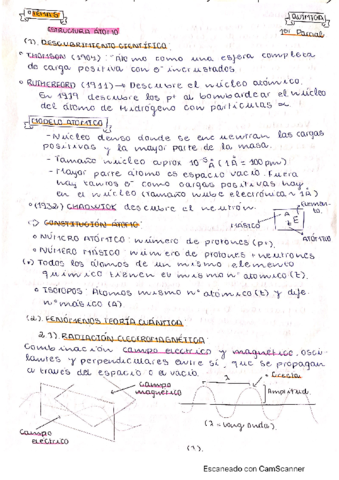 QUÍMICA
1er Parcial
ESTRUCTURA ÁTOMO
(1). DESCUBRIMIENTO CIENTÍFICO:
• THOMSON (1904): Átomo como una esfera completa
de carga positiva con e⁻ incrustados.
• RUTHERFORD (1911) → Descubre el núcleo atómico.
En 1919 descubre los p+ al bombardear el núcleo
del átomo de Hidrógeno con partículas α
MODELO ATÓMICO
- Núcleo denso donde se encuentran las cargas
positivas y la mayor parte de la masa.
- Tamaño núcleo aprox 10⁻⁵ Å (1Å = 100 pm)
- Mayor parte átomo es espacio vacío. Fuera
hay tantos e⁻ como cargas positivas hay
en el núcleo (tamaño nube electrónica ~ 1Å)
• (1932) CHADWICK descubre el neutrón.
Elemento
MÁSICO
A
E
ATÓMICO
CONSTITUCIÓN ÁTOMO
• NÚMERO ATÓMICO: número de protones (p+).
• NÚMERO MÁSICO: número de protones + neutrones
(•) Todos los átomos de un mismo elemento
químico tienen el mismo nº atómico (Z).
• ISÓTOPOS: Átomos mismo nº atómico (Z) y dife.
nº másico (A)
(2). FENÓMENOS TEORÍA CUÁNTICA
2.1) RADIACIÓN ELECTROMAGNÉTICA
Combinación campo eléctrico y magnético, osci-
lantes y perpendiculares entre sí, que se propagan
a través del espacio o a vacío.
Campo
magnético
λ
Cresta
Amplitud
Campo
eléctrico
(λ = long. onda).
(1).
Escaneado con CamScanner